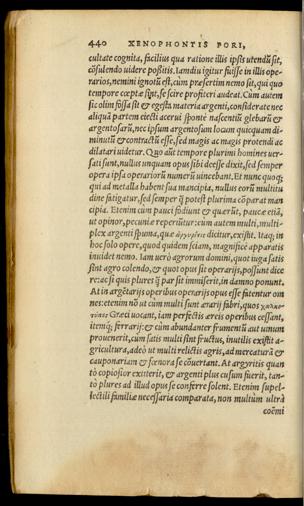 440 XENOPHONTIS PORI,
cultate cognita, facilius qua ratione illis ipsis utendũ sit,
cõsulendo uidere poßitis. Iamdiu igitur fuisse in illis ope-
rarios, nemini ignotũ est, cùm præsertim nemo sit, qui quo
tempore cœptæ sint, se scire profiteri audeat. Cùm autem
sic olim fossa sit & egesta materia argenti, considerate nec
aliquã partem eiecti acerui spontè nascentiũ glebarũ &
argentosarũ, nec ipsum argentosum locum quicquam di-
minutũ & contractũ esse, sed magis ac magis protendi ac
dilatari uidetur. Quo aũt tempore plurimi homines uer-
sati sunt, nullus unquam opus sibi deesse dixit, sed semper
opera ipsa operariorũ numerũ uincebant. Et nunc quoq;
qui ad metalla habent sua mancipia, nullus eorũ multitu
dine fatigatur, sed semper q̃ potest plurima cõparat man
cipia. Etenim cùm pauci fodiunt & quærũt, paucæ etiã,
ut opinor, pecuniæ reperiũtur: cum autem multi, multi-
plex argenti spuma, quæ dicitur, existit. Itaq; in
hoc solo opere, quod quidem sciam, magnificè apparatis
inuidet nemo. Iam uerò agrorum domini, quot iuga satis
sint agro colendo, & quot opus sit operarijs, possunt dice
re: ac si quis plures q̃ par sit immiserit, in damno ponunt.
At in argẽtarijs operibus operarijs opus esse fatentur om
nes: etenim nõ ut cùm multi sunt ærarij fabri, quos χαλκο-
τύπους Græci uocant, iam perfectis æreis operibus cessant,
itemq; ferrarij: & cùm abundanter frumentũ aut uinum
prouenerit, cùm satis multi sint fructus, inutilis existit a-
gricultura, adeò ut multi relictis agris, ad mercaturã &
cauponariam & fœnora se cõuertant. At argyritis quan
tò copiosior extiterit, & argenti plus cusum fuerit, tan-
tò plures ad illud opus se conferre solent. Etenim supel-
lectili familiæ necessaria comparata, non multùm ultrà
coëmi